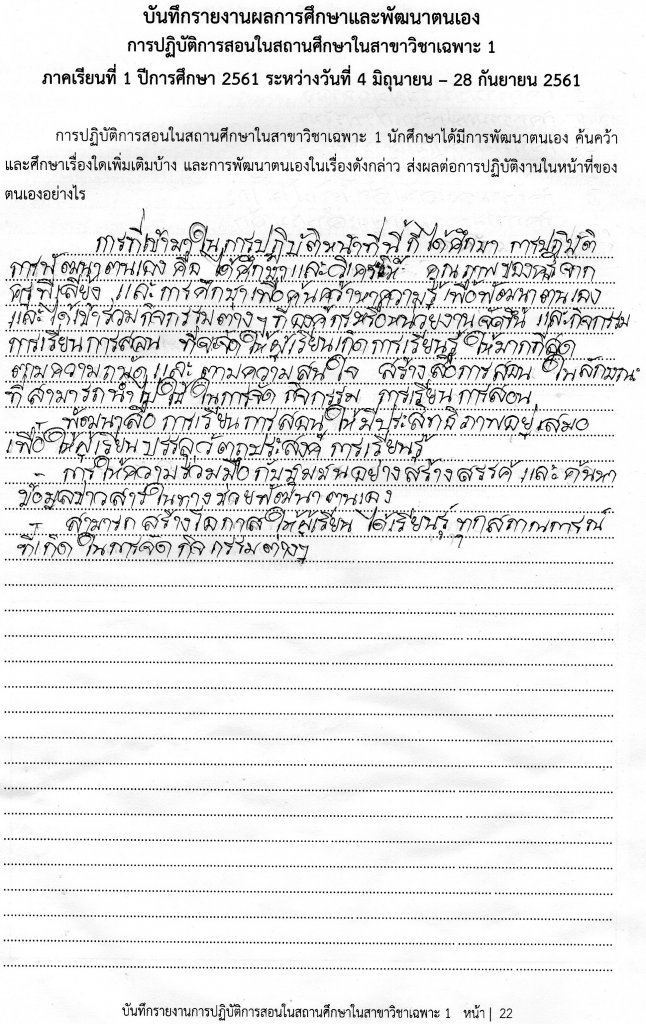 บันทึกรายงานผลการศึกษาและพัฒนาตนเอง
การปฏิบัติการสอนในสถานศึกษาในสาขาวิชาเฉพาะ 1
ภาคเรียนที่ 1 ปีการศึกษา 2561 ระหว่างวันที่ 4 มิถุนายน – 28 กันยายน 2561
การปฏิบัติการสอนในสถานศึกษาในสาขาวิชาเฉพาะ 1 นักศึกษาได้มีการพัฒนาตนเอง ค้นคว้า
และศึกษาเรื่องใดเพิ่มเติมบ้าง และการพัฒนาตนเองในเรื่องดังกล่าว ส่งผลต่อการปฏิบัติงานในหน้าที่ของ
ตนเองอย่างไร
การที่เข้ามาในการปฏิบัติหน้าที่นี้ ก็ได้ศึกษา การปฏิบัติ
การพัฒนาตนเอง คือ ได้ศึกษาและวิเคราะห์ คุณภาพของ จาก
ครูพี่เลี้ยง และการศึกษาเพื่อค้นคว้าหาความรู้เพื่อพัฒนาตนเอง
และได้เข้าร่วมกิจกรรมต่างๆ ที่องค์กรหรือหน่วยงานจัดขึ้น และกิจกรรม
การเรียนการสอน ที่จะจัดให้ผู้เรียนเกิดการเรียนรู้ให้มากที่สุด
ตามความถนัดและตามความสนใจ สร้างสื่อการสอน ในลักษณะ
ที่สามารถนำไปใช้ในการจัด กิจกรรม การเรียนการสอน
- พัฒนาสื่อการเรียนการสอนให้มีประสิทธิภาพอยู่เสมอ
เพื่อให้ผู้เรียนบรรลุวัตถุประสงค์ การเรียนรู้
- การให้ความร่วมมือกับชุมชนอย่างสร้างสรรค์ และค้นหา
ข้อมูลข่าวสารในทางช่วยพัฒนาตนเอง
- สามารถสร้างโอกาสให้ผู้เรียน ได้เรียนรู้ ทุกสถานการณ์
ที่เกิดในการจัดกิจกรรมต่างๆ
บันทึกรายงานการปฏิบัติการสอนในสถานศึกษาในสาขาวิชาเฉพาะ 1 หน้า| 22